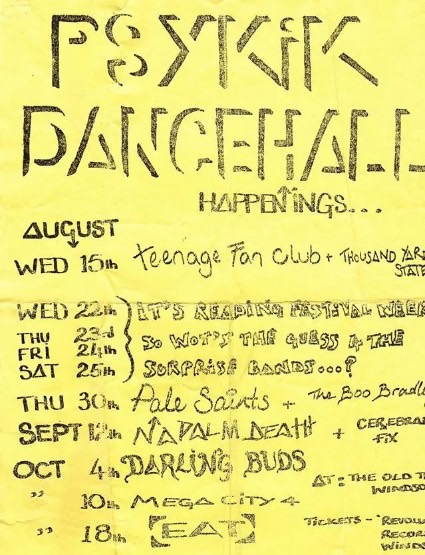 PSYKIK
DANCEHALL
HAPPENINGS...
AUGUST
WED 15th Teenage Fan Club + THOUSAND YAR
STATE
WED 22th } IT'S READING FESTIVAL WEEK
THU 23rd
FRI 24th SO WOT'S THE GUESS 4 THE
SAT 25th SURPRISE BANDS...?
THU 30th Pale Saints + The Boo Bradle
SEPT NAPALM DEATH + CEREBRA
FIX
OCT 4th DARLING BUDS
AT: THE OLD T
WINDSO
" 10th MEGA CITY 4
" 18th [EAT] TICKETS - 'REVOLU
RECOR
WINDS